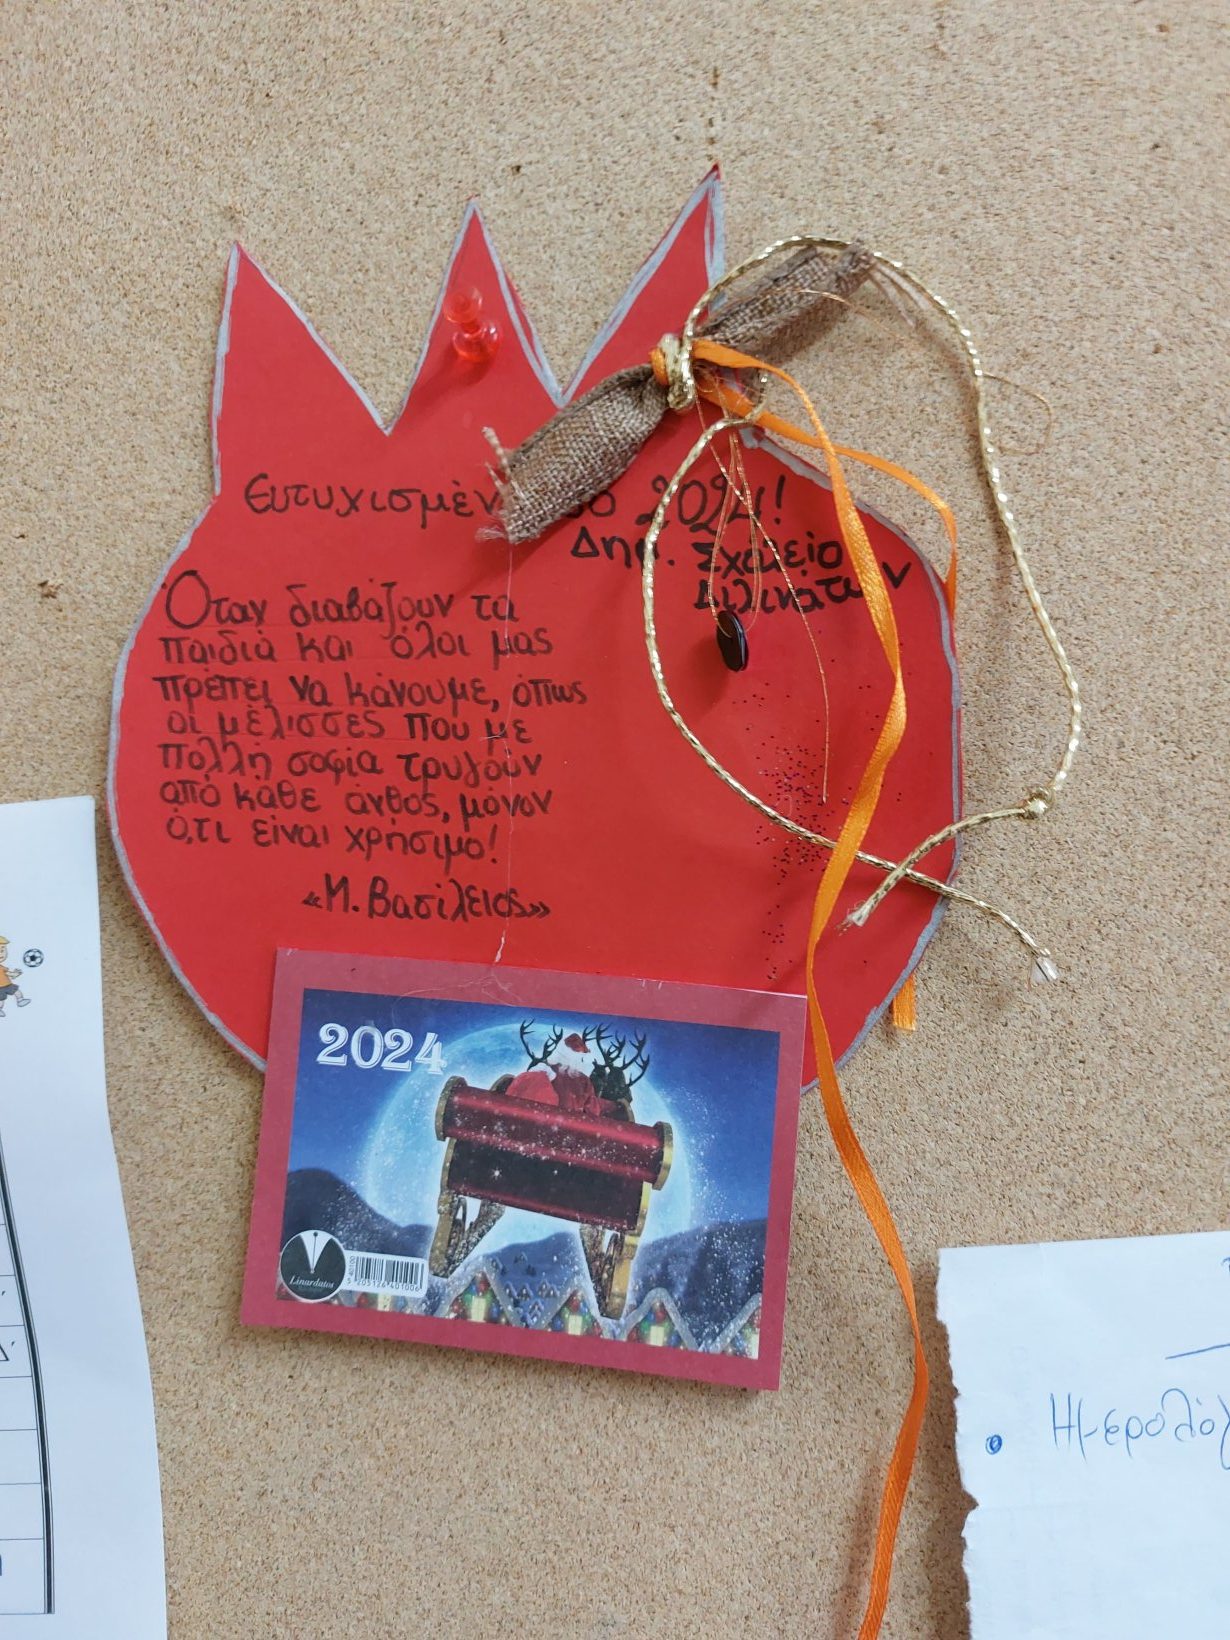 Ευτυχισμέν
2024!
Δημ. Σχολείο
Διλινάτων
Όταν διαβάζουν τα
παιδιά και όλοι μας
πρέπει να κάνουμε, όπως
οι μέλισσες που με
πολλή σοφία τρυγούν
από κάθε άνθος, μόνον
ό,τι είναι χρήσιμο!
«Μ. Βασίλειος»
2024
Linardatos
5 205126 401006
Δ΄
• Ημερολόγ